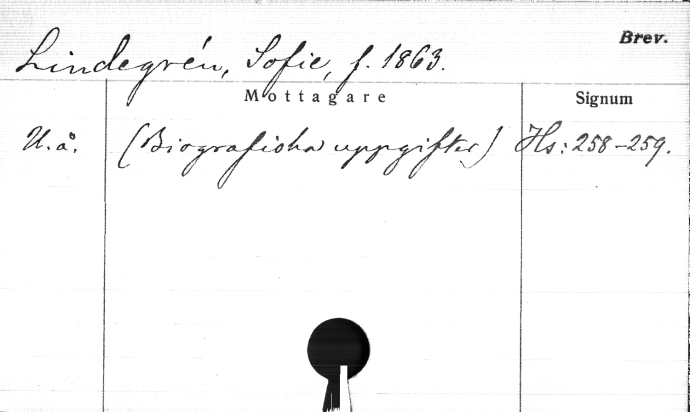 Brev.
Lindegrén, Sofie, f. 1863.
Mottagare Signum
U.å. (Biografiska uppgifter) Hs: 258-259.